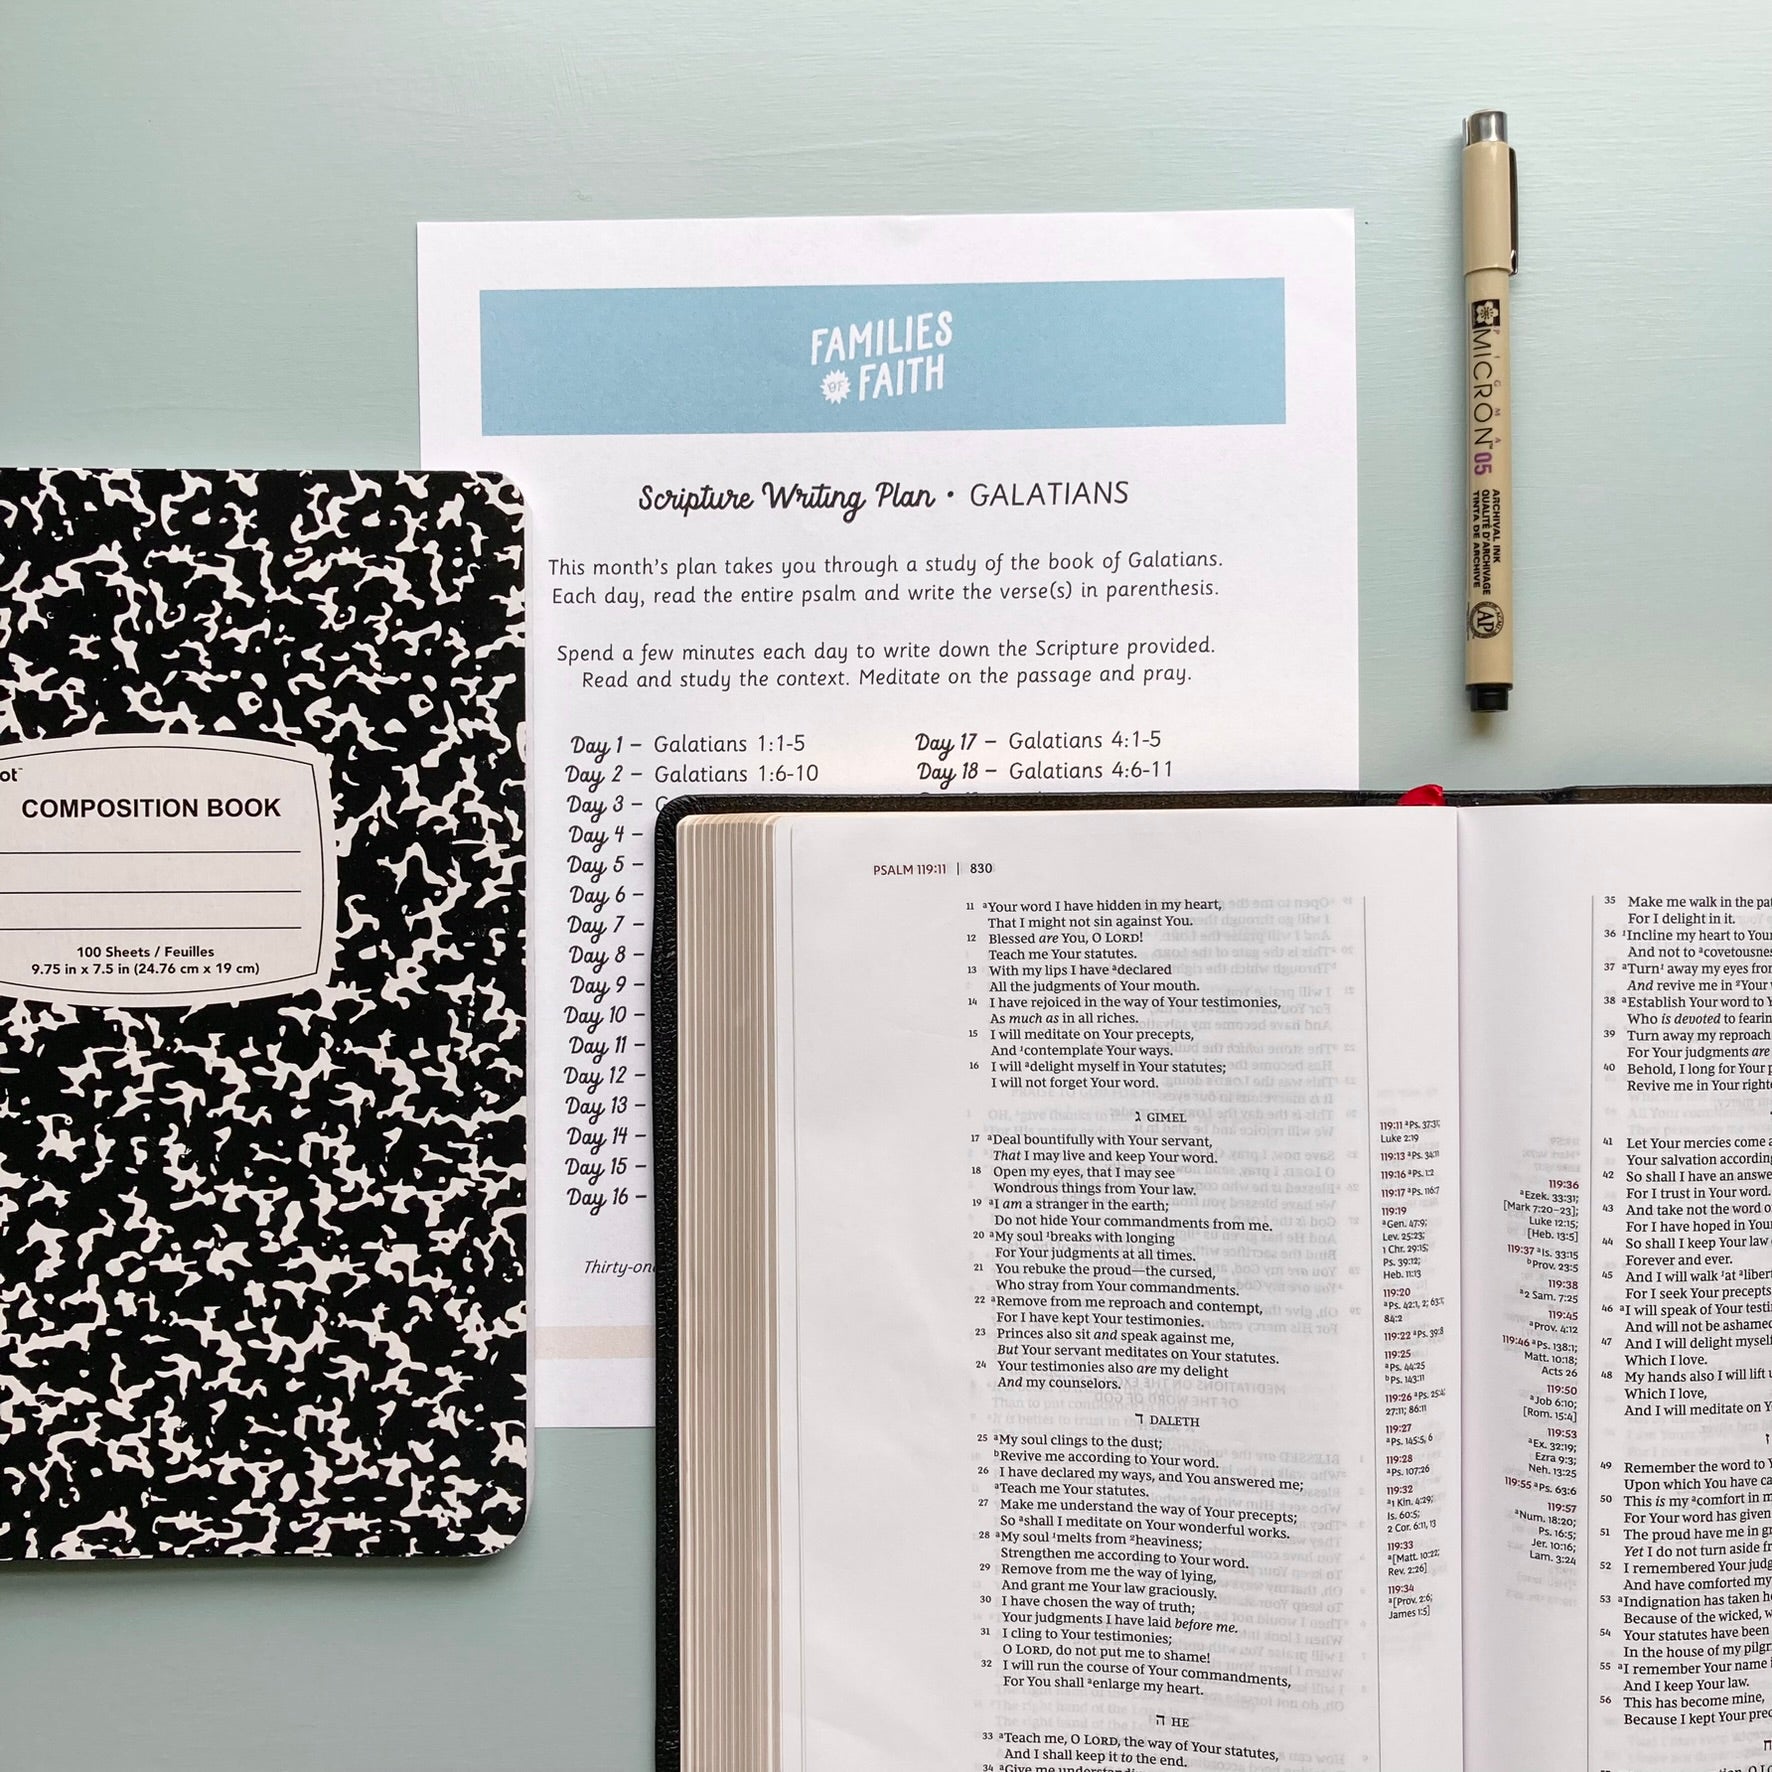 FAMILIES
OF FAITH
Scripture Writing Plan • GALATIANS
This month's plan takes you through a study of the book of Galatians.
Each day, read the entire psalm and write the verse(s) in parenthesis.
Spend a few minutes each day to write down the Scripture provided.
Read and study the context. Meditate on the passage and pray.
Day 1 – Galatians 1:1-5
Day 2 – Galatians 1:6-10
Day 3 –
Day 4 –
Day 5 –
Day 6 –
Day 7 –
Day 8 –
Day 9 –
Day 10 –
Day 11 –
Day 12 –
Day 13 –
Day 14 –
Day 15 –
Day 16 –
Day 17 – Galatians 4:1-5
Day 18 – Galatians 4:6-11
COMPOSITION BOOK
100 Sheets / Feuilles
9.75 in x 7.5 in (24.76 cm x 19 cm)
PIGMA
MICRON 05
ARCHIVAL INK
QUALITÉ D'ARCHIVAGE
TINTA DE ARCHIVE
AP
PSALM 119:11 | 830
11 ªYour word I have hidden in my heart,
That I might not sin against You.
12 Blessed are You, O LORD!
Teach me Your statutes.
13 With my lips I have ªdeclared
All the judgments of Your mouth.
14 I have rejoiced in the way of Your testimonies,
As much as in all riches.
15 I will meditate on Your precepts,
And ¹contemplate Your ways.
16 I will ªdelight myself in Your statutes;
I will not forget Your word.
ג GIMEL
17 ªDeal bountifully with Your servant,
That I may live and keep Your word.
18 Open my eyes, that I may see
Wondrous things from Your law.
19 ªI am a stranger in the earth;
Do not hide Your commandments from me.
20 ªMy soul ¹breaks with longing
For Your judgments at all times.
21 You rebuke the proud—the cursed,
Who stray from Your commandments.
22 ªRemove from me reproach and contempt,
For I have kept Your testimonies.
23 Princes also sit and speak against me,
But Your servant meditates on Your statutes.
24 Your testimonies also are my delight
And my counselors.
ד DALETH
25 ªMy soul clings to the dust;
ᵇRevive me according to Your word.
26 I have declared my ways, and You answered me;
ªTeach me Your statutes.
27 Make me understand the way of Your precepts;
So ªshall I meditate on Your wonderful works.
28 ªMy soul ¹melts from ²heaviness;
Strengthen me according to Your word.
29 Remove from me the way of lying,
And grant me Your law graciously.
30 I have chosen the way of truth;
Your judgments I have laid before me.
31 I cling to Your testimonies;
O LORD, do not put me to shame!
32 I will run the course of Your commandments,
For You shall ªenlarge my heart.
ה HE
33 ªTeach me, O LORD, the way of Your statutes,
And I shall keep it to the end.
34 ªGive me
119:11 ªPs. 37:31;
Luke 2:19
119:13 ªPs. 34:11
119:16 ªPs. 1:2
119:17 ªPs. 116:7
119:19
ªGen. 47:9;
Lev. 25:23;
1 Chr. 29:15;
Ps. 39:12;
Heb. 11:13
119:20
ªPs. 42:1, 2; 63:1;
84:2
119:22 ªPs. 39:8
119:25
ªPs. 44:25
ᵇPs. 143:11
119:26 ªPs. 25:4;
27:11; 86:11
119:27
ªPs. 145:5, 6
119:28
ªPs. 107:26
119:32
ª1 Kin. 4:29;
Is. 60:5;
2 Cor. 6:11, 13
119:33
ª[Matt. 10:22;
Rev. 2:26]
119:34
ª[Prov. 2:6;
James 1:5]
119:36
ªEzek. 33:31;
[Mark 7:20–23];
Luke 12:15;
[Heb. 13:5]
119:37 ªIs. 33:15
ᵇProv. 23:5
119:38
ª2 Sam. 7:25
119:45
ªProv. 4:12
119:46 ªPs. 138:1;
Matt. 10:18;
Acts 26
119:50
ªJob 6:10;
[Rom. 15:4]
119:53
ªEx. 32:19;
Ezra 9:3;
Neh. 13:25
119:55 ªPs. 63:6
119:57
ªNum. 18:20;
Ps. 16:5;
Jer. 10:16;
Lam. 3:24
35 Make me walk in the
For I delight in it.
36 ¹Incline my heart to
And not to ªcovetousness
37 ªTurn¹ away my eyes
And revive me in ²Your
38 ªEstablish Your word to
Who is devoted to
39 Turn away my reproach
For Your judgments are
40 Behold, I long for Your
Revive me in Your
41 Let Your mercies come
Your salvation
42 So shall I have an
For I trust in Your word.
43 And take not the word
For I have hoped in
44 So shall I keep Your law
Forever and ever.
45 And I will walk ¹at
For I seek Your precepts
46 ªI will speak of Your
And will not be ashamed
47 And I will delight
Which I love.
48 My hands also I will lift
Which I love,
And I will meditate on
49 Remember the word to
Upon which You have
50 This is my ªcomfort in
For Your word has given
51 The proud have me in
Yet I do not turn aside
52 I remembered Your
And have comforted
53 ªIndignation has taken
Because of the wicked,
54 Your statutes have been
In the house of my
55 ªI remember Your name
And I keep Your law.
56 This has become mine,
Because I kept Your